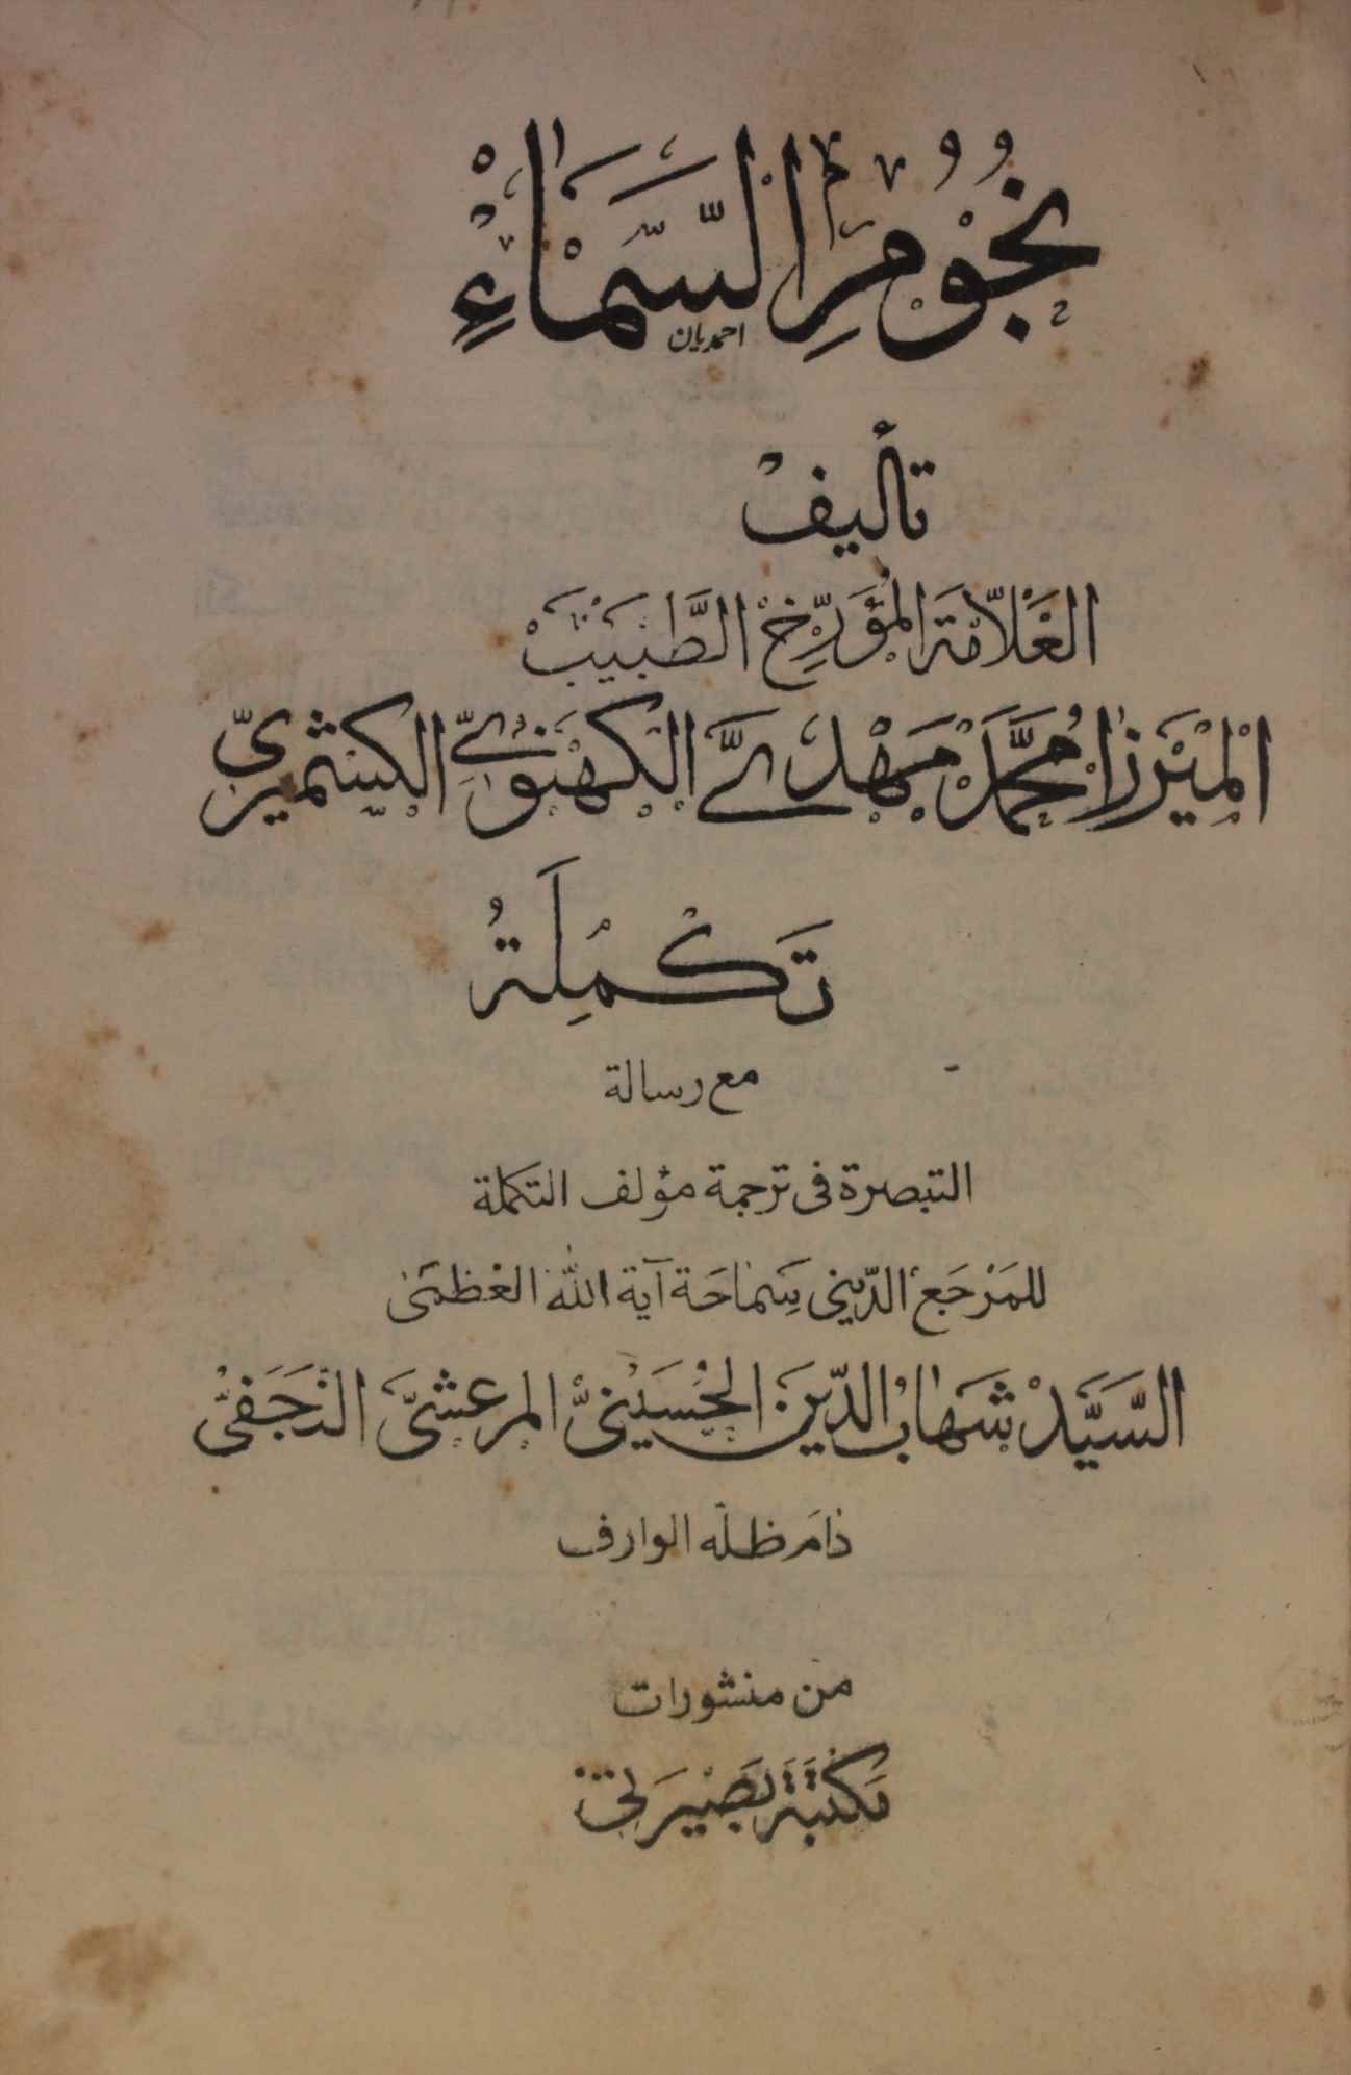 نُجُوْمُ السَّمَاءِ
احمدیان
تأليف
العَلّامَة المُؤَرِّخ الطَّبيب
الميرزا مُحَمَّد مَهْدي اللَّكهنوي الكشميري
تَكْمِلَةُ
مع رسالة
التبصرة فى ترجمة مؤلف التكملة
للمَرْجَع الدّيني سَماحَة آية الله العُظمىٰ
السَّيَّد شَهَاب الدّين الحُسَينيّ المرعشيّ النَّجَفيّ
دَامَ ظلّه الوارف
من منشورات
مَكتَبَة بَصيرَتي